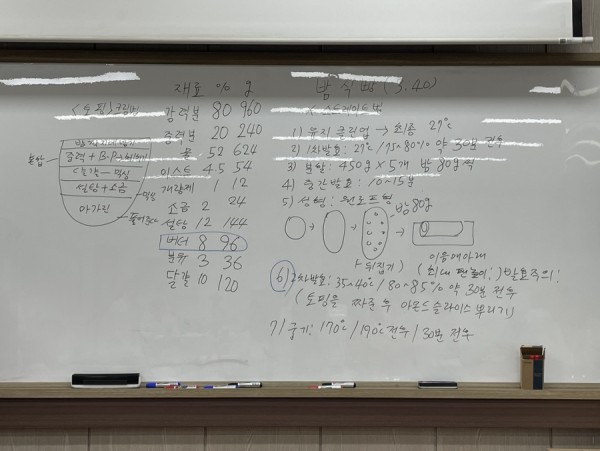 재료 % g
강력분 80 960
중력분 20 240
물 52 624
이스트 4.5 54
개량제 1 12
소금 2 24
설탕 12 144
버터 8 96
분유 3 36
달걀 10 120
<토핑> 크림법
중력 + B.P
달걀
설탕 + 소금
마가린
혼합
풀어준다
밤식빵 (3:40)
스트레이트법
1) 유지 클린업 → 최종 27℃
2) 1차발효: 27℃ / 75~80% 약 30분 전후
3) 분할: 450g × 5개 밤 80g씩
4) 중간발효: 10~15분
5) 성형: 원로프형
밤80g
뒤집기
이음매아래
6) 2차발효: 35~40℃ / 80~85% 약 30분 전후
(토핑을 짜준 후 아몬드슬라이스 뿌리기)
7) 굽기: 170℃ / 190℃ 전후 / 30분 전후